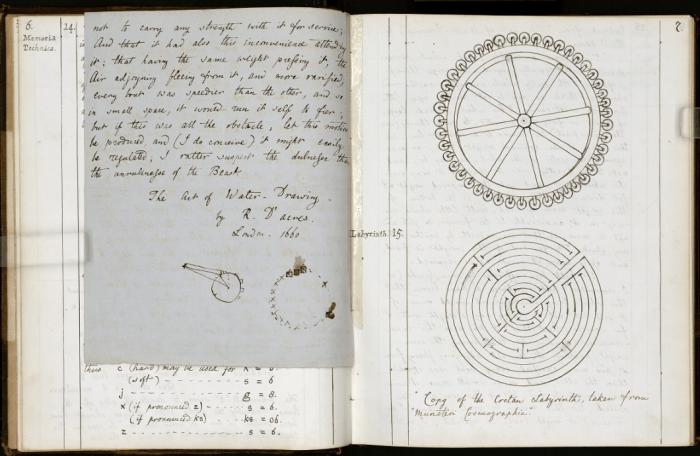 6.
Memoria
Technica.
24
not to carry any strength with it for service;
And that it had also this inconvenience attending
it; that having the same weight pressing it, the
Air adjoyning fleeing from it, and more rarified,
every bout was speedier than the other, and so
in small space, it would run it self to fier;
but if this was all the obstacle, let this motion
be produced, and (I do conceive) it might easily
be regulated, I rather suspect the dulnesse than
the unrulinesse of the Beast.
The Art of Water-Drawing.
by R. D'acres.
London. 1660
thus c (hard) may be used for k = 8.
(soft) - - - - - - - - - s = 6
j - - - - - - - - - - - g = 8.
x (if pronounced z) - - - s = 6.
(if pronounced ks) ks = 06.
z - - - - - - - - - - - s = 6.
7.
Labyrinth. 15.
"Copy of the Cretan Labyrinth, taken from
Munster Cosmographia"